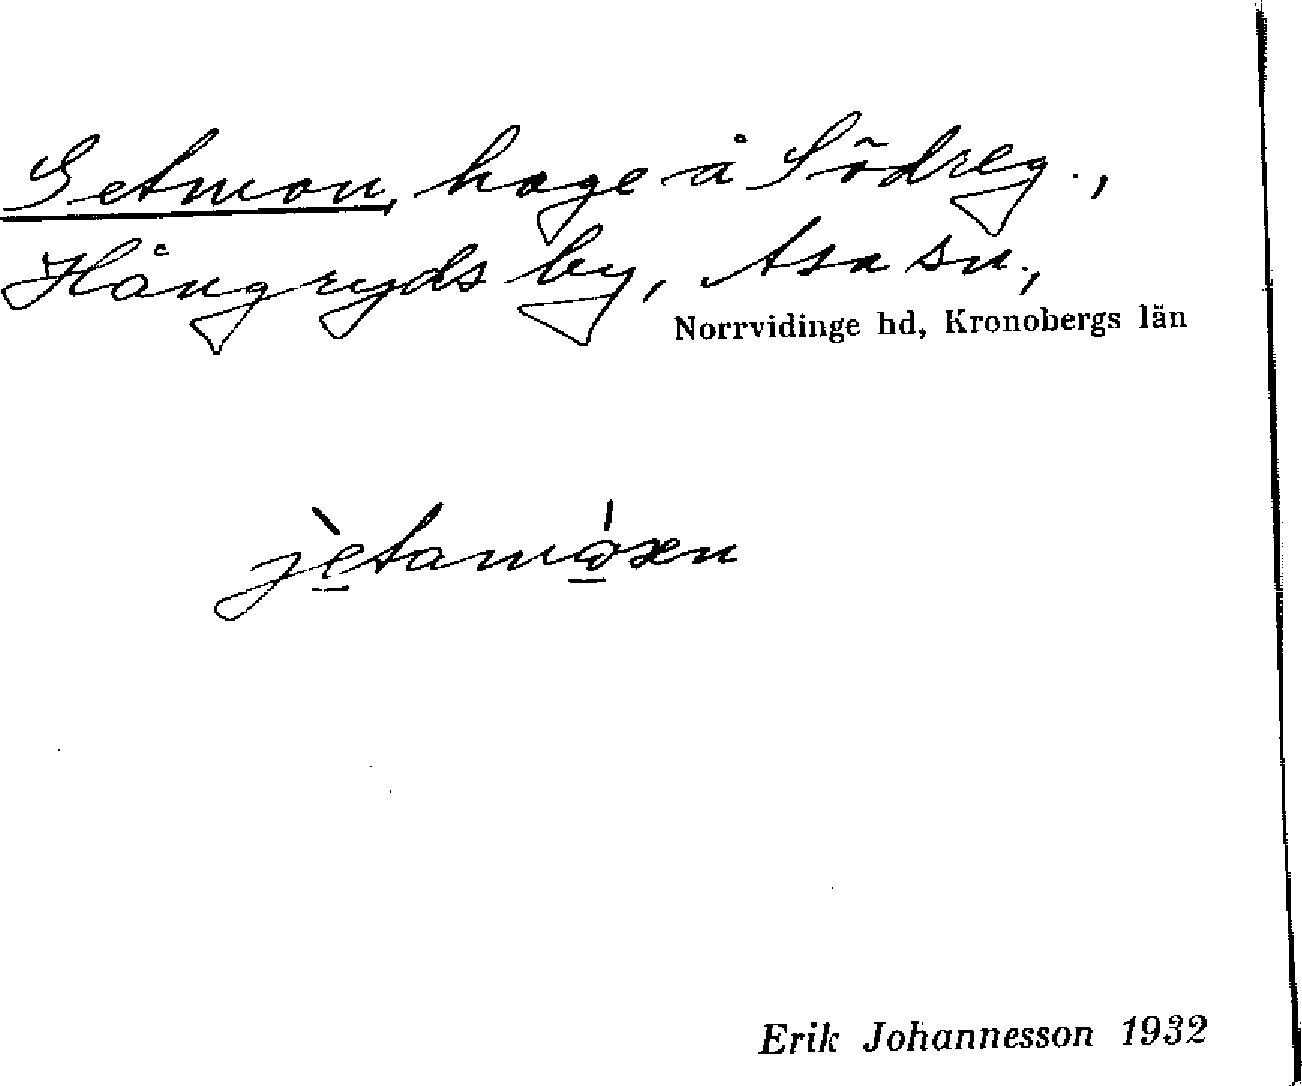 Getmon, hage å Södreg.,
Hångryds by, Asa sn.,
Norrvidinge hd, Kronobergs län
Erik Johannesson 1932